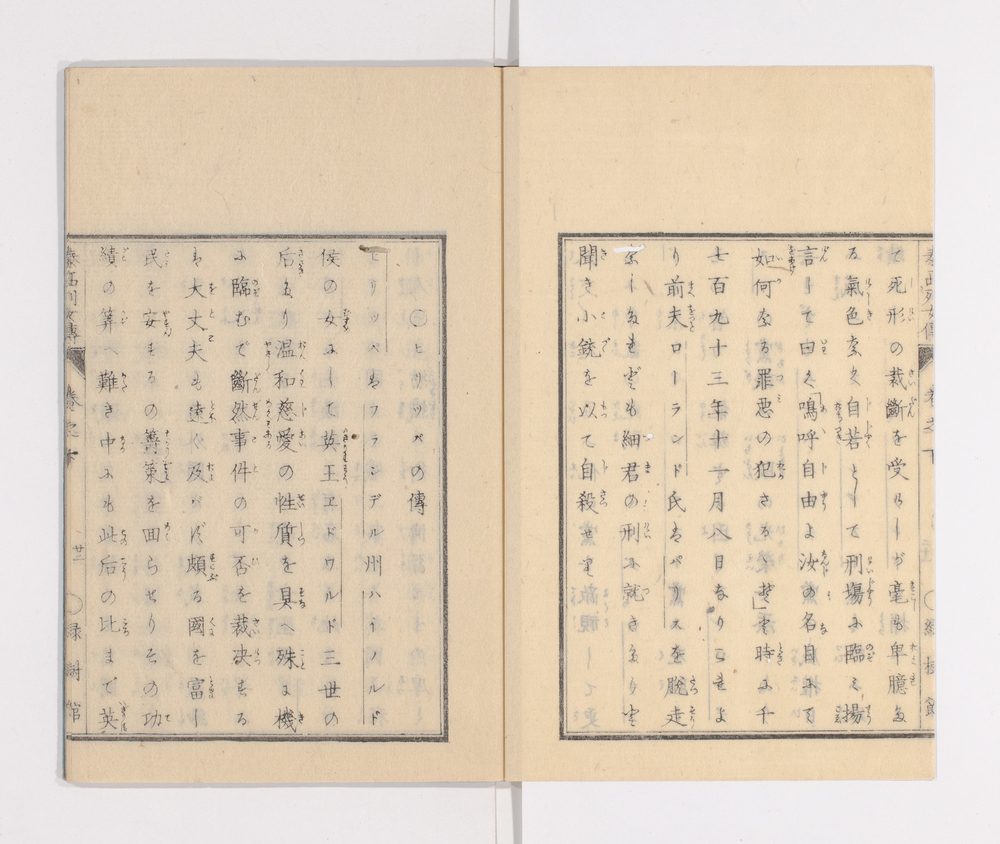 て死形の裁斷を受けしが毫も卑臆な
る氣色なく自若として刑塲に臨み揚
言して曰く「嗚呼自由よ汝の名目にて
如何なる罪惡の犯さるゝぞ」と實時に千
七百九十三年十一月八日なりこれよ
り前夫ローランド氏はパリスを脫走
なしたれども細君の刑に就きたりと
聞き小銃を以て自殺せ
泰西列女傳
卷之下
緑樹館
〇ヒリッパの傳
ヒリッパはフランデル州ハーノルド
侯の女にして英王エドワルド三世の
后なり溫和慈愛の性質を具へ殊に機
に臨むで斷然事件の可否を裁决する
は大丈夫も遠く及バず頗る國を富し
民を安もるの籌策を囬らせりその功
績の算へ難き中にも此后の比まで英
泰西列女傳
卷之下
廿二
〇緑樹館